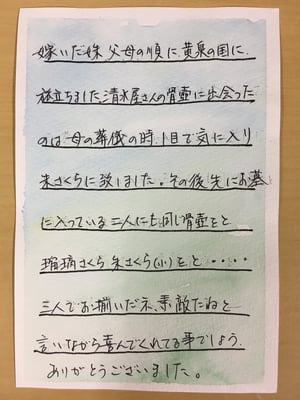 嫁いだ妹 父母の順に、黄泉の国に
旅立ちました 清水屋さんの骨壷に出会った
のは母の葬儀の時、1目で気に入り
朱さくらに致しました。その後先にお墓
に入っている二人にも同じ骨壷をと
瑠璃さくら 朱さくら(小)をと・・・・
三人でお揃いだネ、素敵だねと
言いながら喜んでくれてる事でしょう、
ありがとうございました。